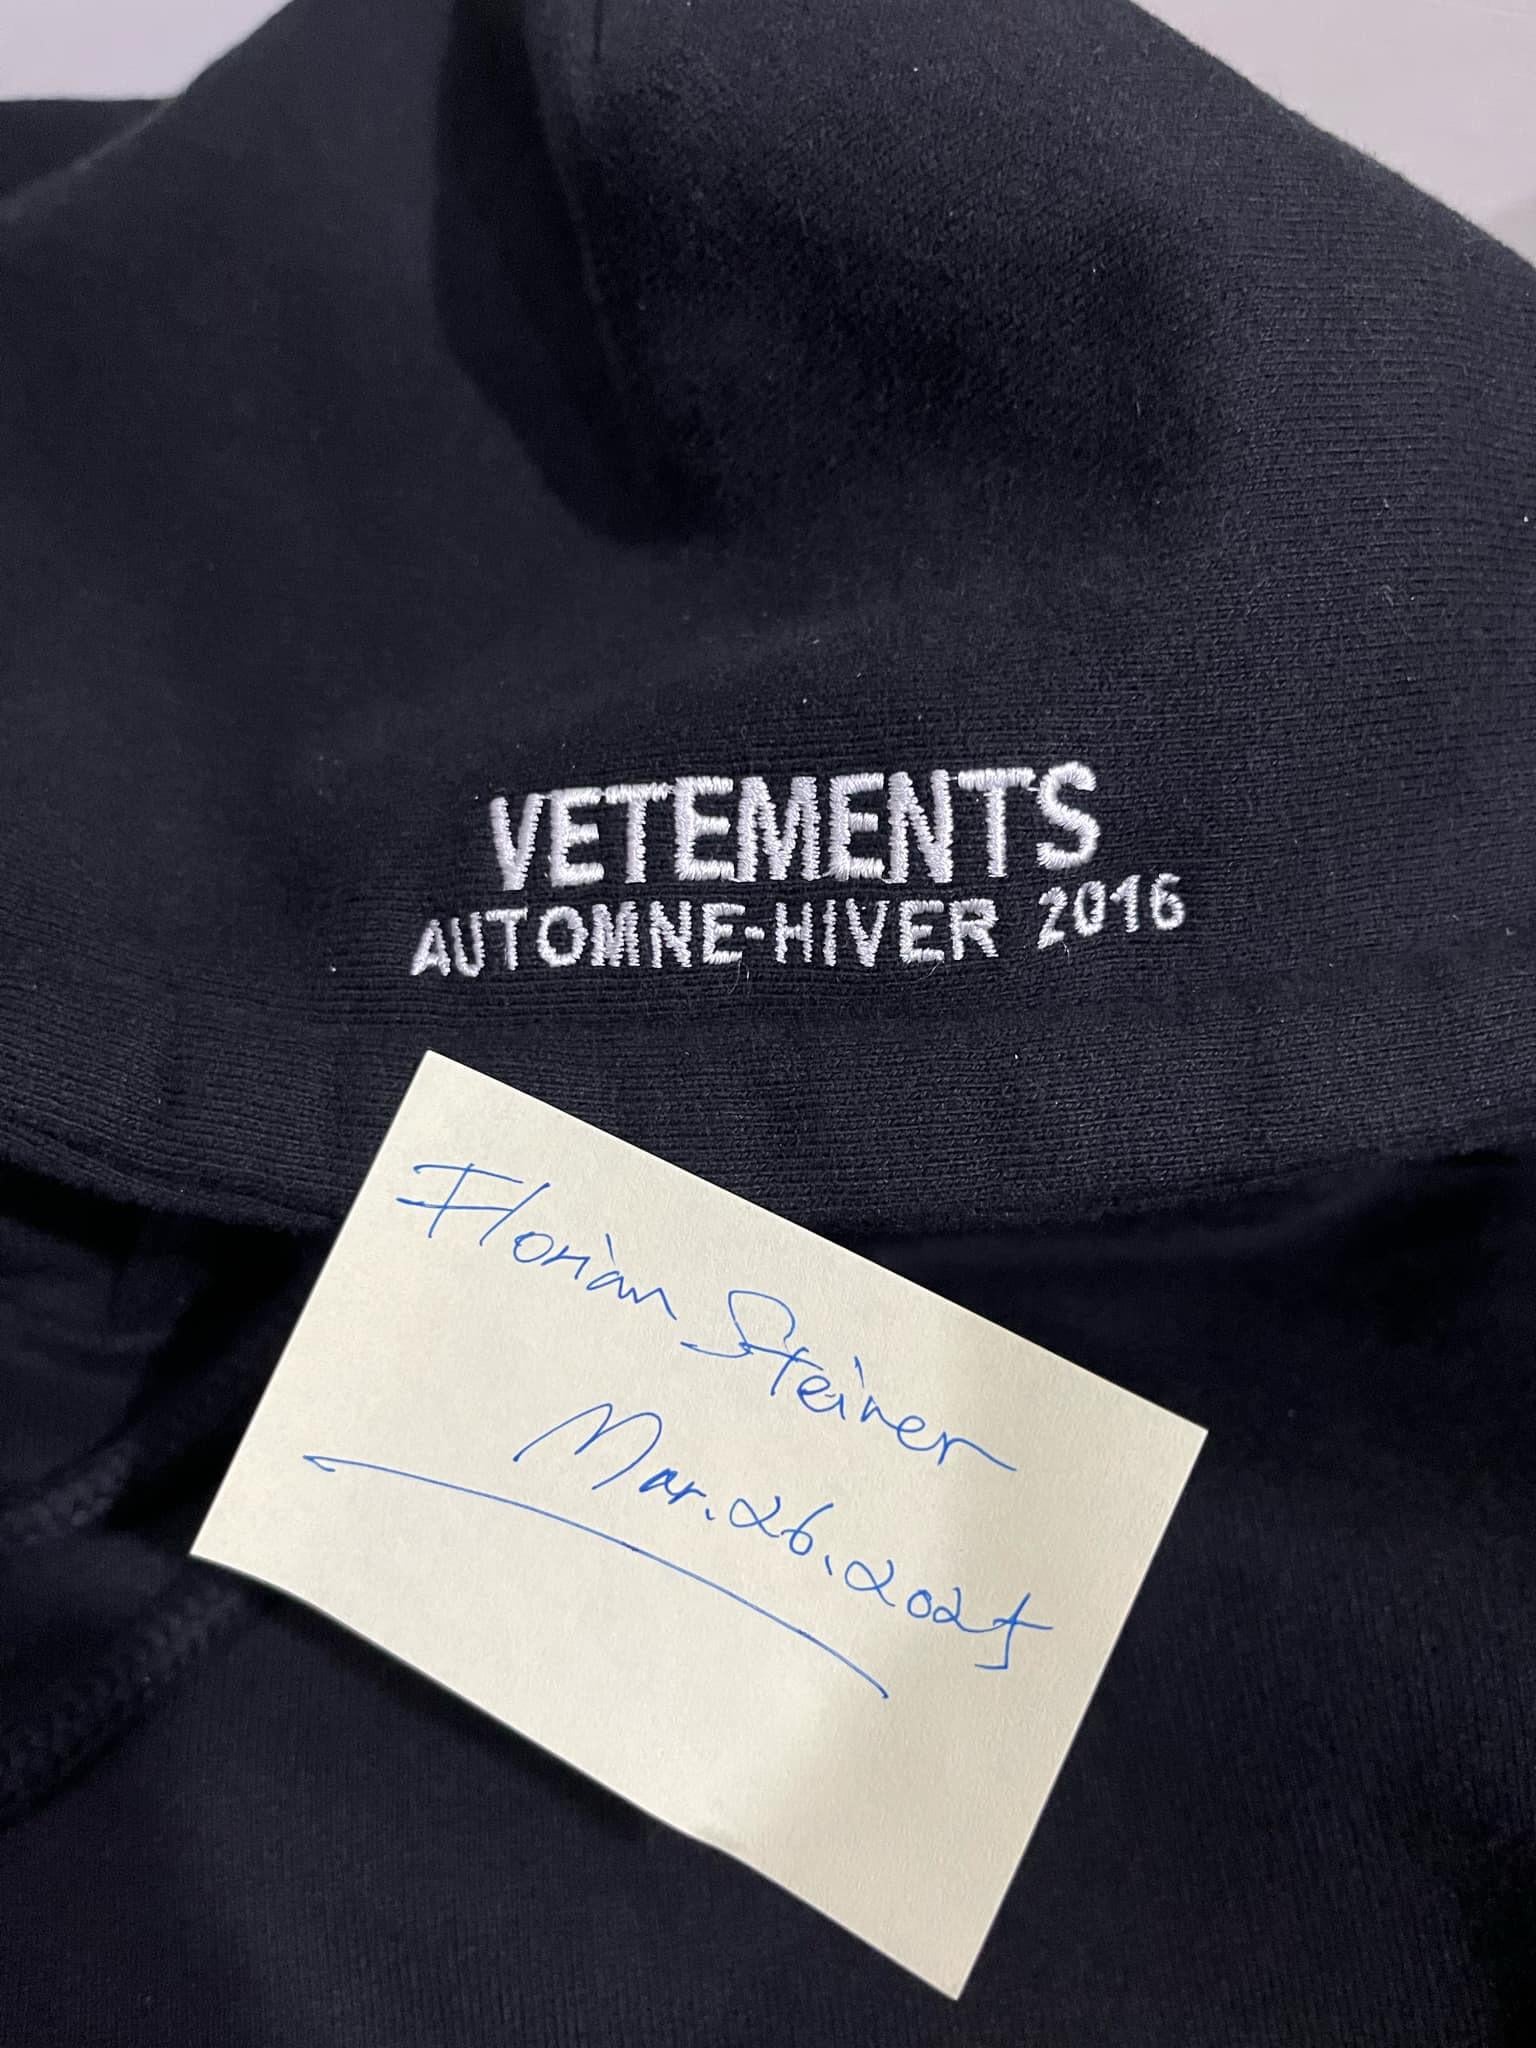 VETEMENTS
AUTOMNE-HIVER 2016
Florian Steiner
Mar. 26. 2025